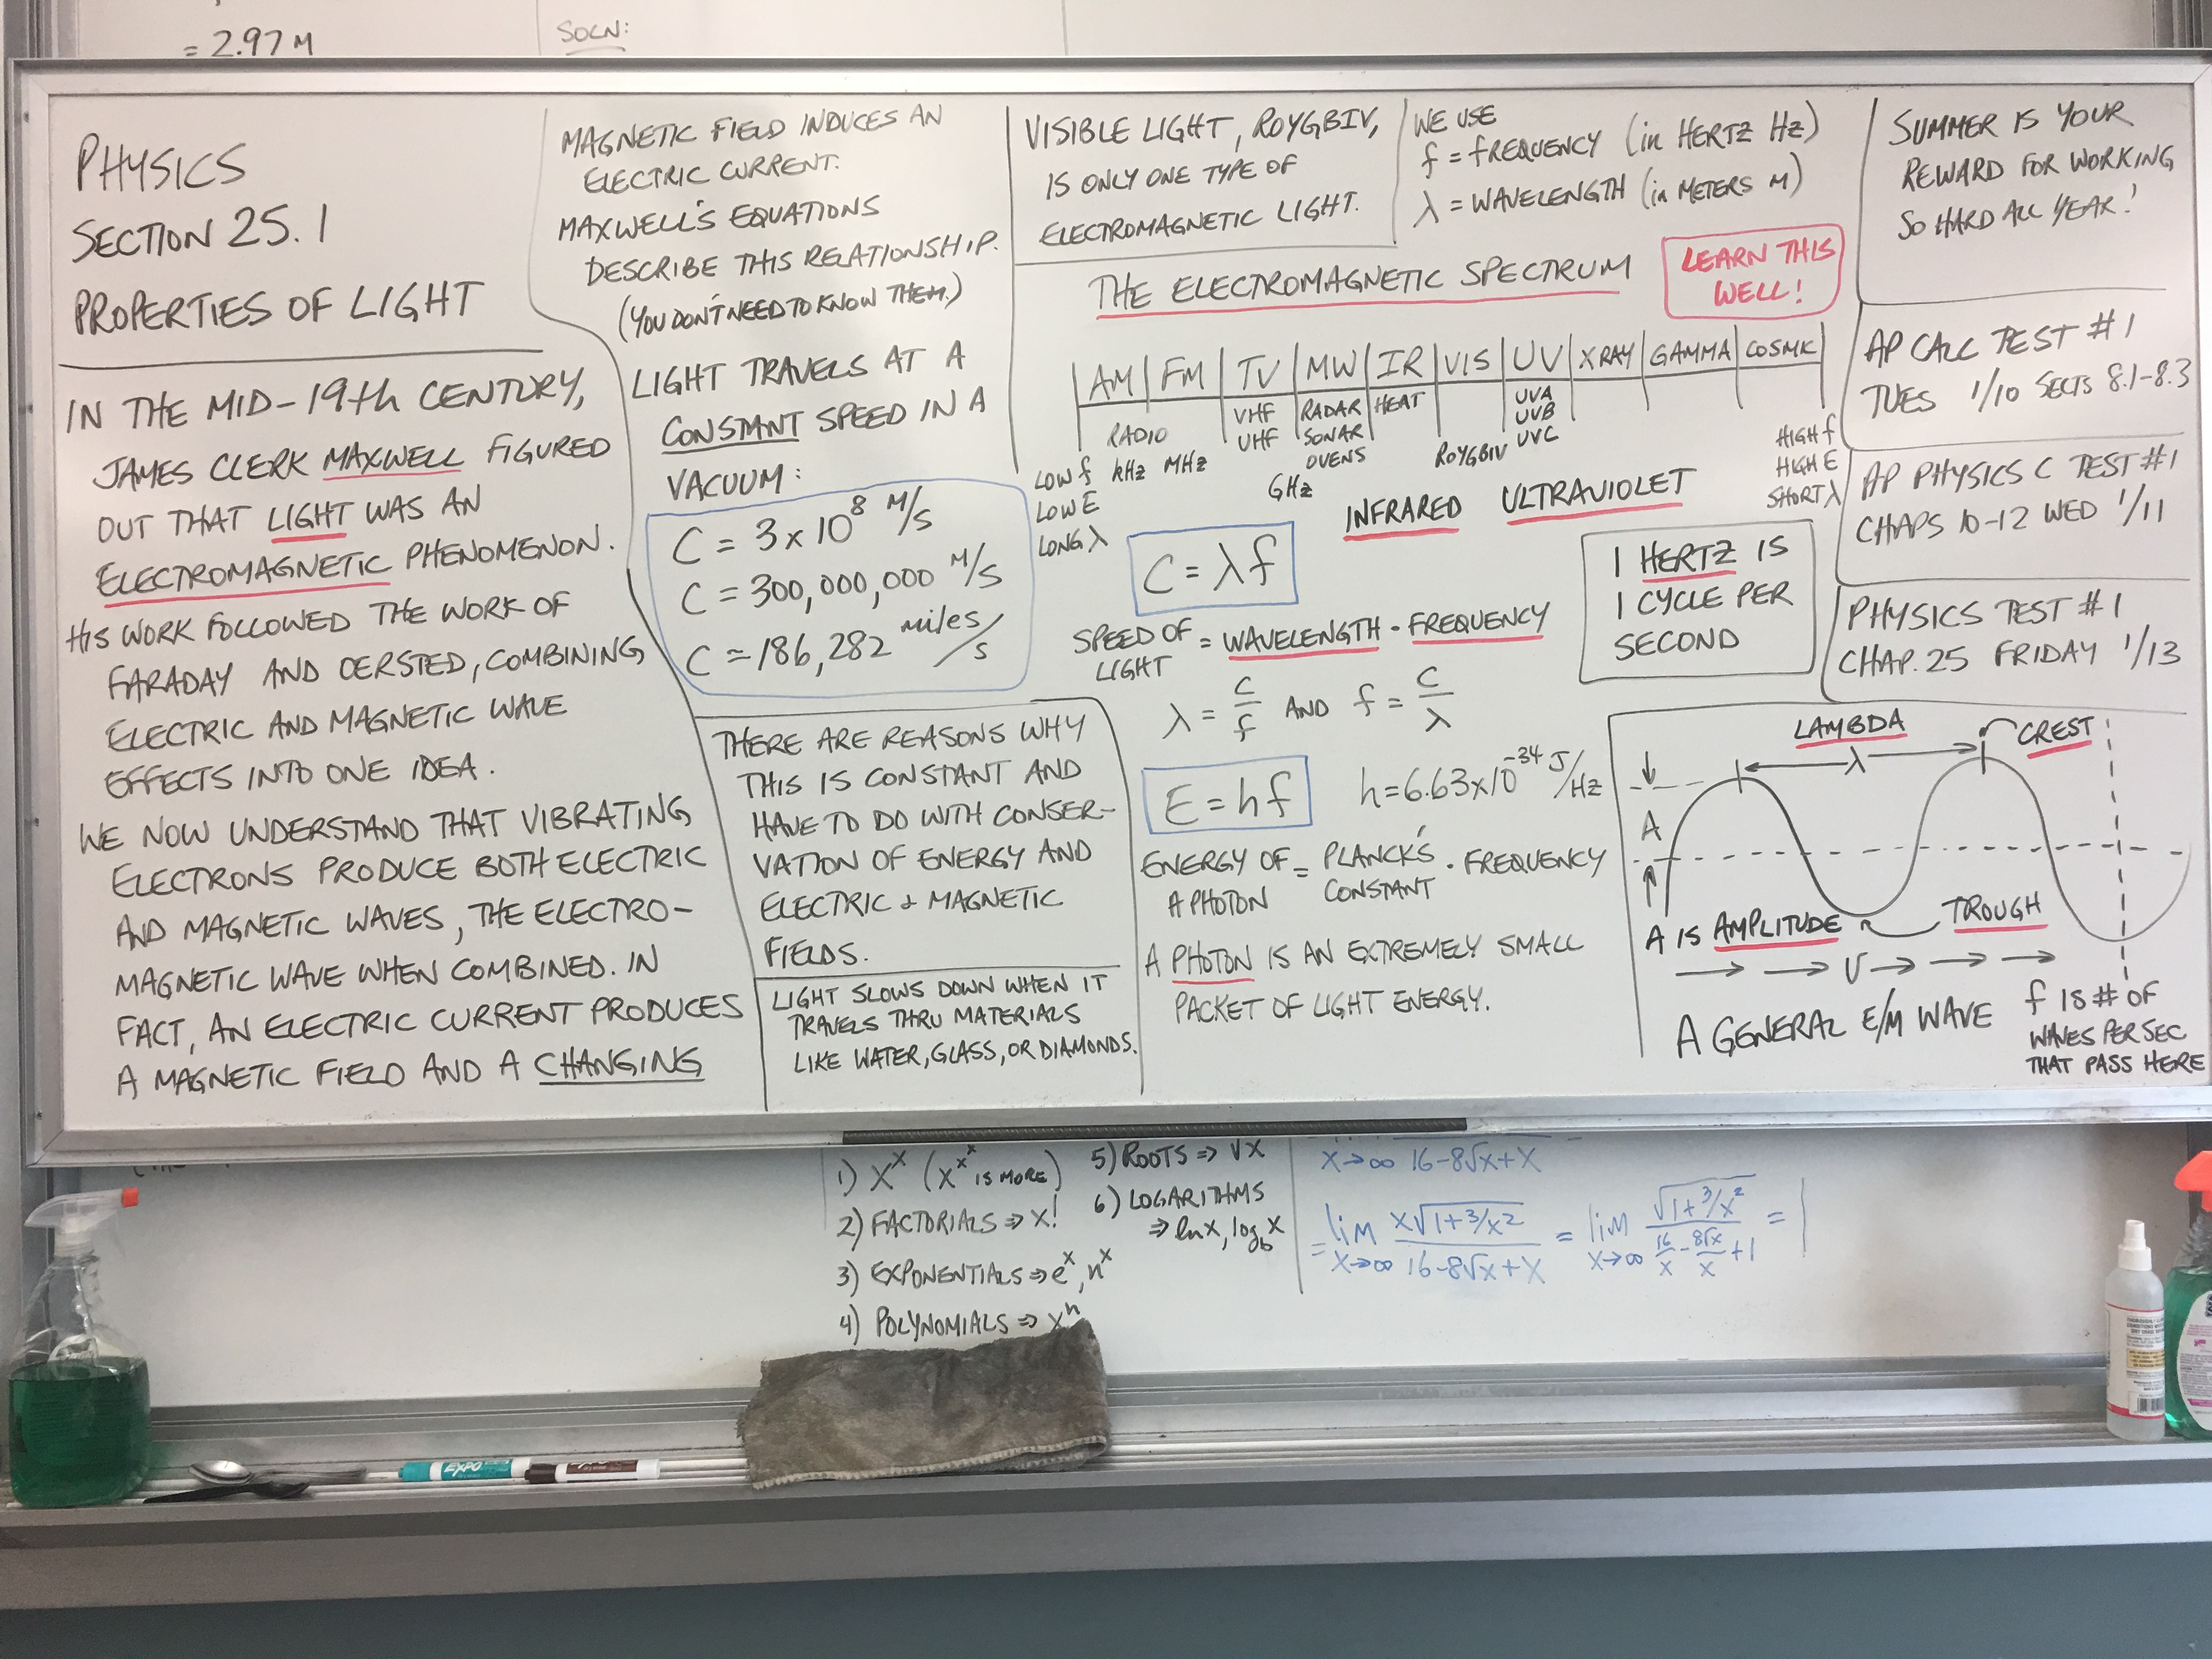 = 2.97 M
SOLN:
PHYSICS
SECTION 25.1
PROPERTIES OF LIGHT
IN THE MID-19th CENTURY,
JAMES CLERK MAXWELL FIGURED
OUT THAT LIGHT WAS AN
ELECTROMAGNETIC PHENOMENON.
HIS WORK FOLLOWED THE WORK OF
FARADAY AND OERSTED, COMBINING
ELECTRIC AND MAGNETIC WAVE
EFFECTS INTO ONE IDEA.
WE NOW UNDERSTAND THAT VIBRATING
ELECTRONS PRODUCE BOTH ELECTRIC
AND MAGNETIC WAVES, THE ELECTRO-
MAGNETIC WAVE WHEN COMBINED. IN
FACT, AN ELECTRIC CURRENT PRODUCES
A MAGNETIC FIELD AND A CHANGING
MAGNETIC FIELD INDUCES AN
ELECTRIC CURRENT.
MAXWELL'S EQUATIONS
DESCRIBE THIS RELATIONSHIP.
(YOU DON'T NEED TO KNOW THEM.)
LIGHT TRAVELS AT A
CONSTANT SPEED IN A
VACUUM:
C = 3 x 10⁸ M/S
C = 300,000,000 M/S
C = 186,282 miles/s
THERE ARE REASONS WHY
THIS IS CONSTANT AND
HAVE TO DO WITH CONSER-
VATION OF ENERGY AND
ELECTRIC + MAGNETIC
FIELDS.
LIGHT SLOWS DOWN WHEN IT
TRAVELS THRU MATERIALS
LIKE WATER, GLASS, OR DIAMONDS.
VISIBLE LIGHT, ROYGBIV,
IS ONLY ONE TYPE OF
ELECTROMAGNETIC LIGHT.
WE USE
f = fREQUENCY (in HERTZ Hz)
λ = WAVELENGTH (in METERS M)
THE ELECTROMAGNETIC SPECTRUM
LEARN THIS
WELL!
AM FM TV MW IR VIS UV XRAY GAMMA COSMIC
VHF RADAR HEAT UVA
RADIO UHF SONAR UVB
OVENS ROYGBIV UVC
LOW f kHz MHz GHz HIGH f
LOW E HIGH E
LONG λ SHORT λ
INFRARED ULTRAVIOLET
C = λf
SPEED OF = WAVELENGTH · FREQUENCY
LIGHT
λ = c/f AND f = c/λ
1 HERTZ IS
1 CYCLE PER
SECOND
E = hf h = 6.63 x 10⁻³⁴ J/Hz
ENERGY OF = PLANCK'S · FREQUENCY
A PHOTON CONSTANT
A PHOTON IS AN EXTREMELY SMALL
PACKET OF LIGHT ENERGY.
SUMMER IS YOUR
REWARD FOR WORKING
SO HARD ALL YEAR!
AP CALC TEST #1
TUES 1/10 SECTS 8.1-8.3
AP PHYSICS C TEST #1
CHAPS 10-12 WED 1/11
PHYSICS TEST #1
CHAP. 25 FRIDAY 1/13
LAMBDA
λ
CREST
A
A IS AMPLITUDE
TROUGH
V
A GENERAL E/M WAVE
f IS # OF
WAVES PER SEC
THAT PASS HERE
1) X^X (X^X^X IS MORE)
2) FACTORIALS ⇒ X!
3) EXPONENTIALS ⇒ e^x, n^x
4) POLYNOMIALS ⇒ X^n
5) ROOTS ⇒ √X
6) LOGARITHMS
⇒ ln x, log_b x
X→∞ 16-8√X+X
= lim X→∞ X√1+3/X² / 16-8√X+X = lim X→∞ √1+3/X² / 16/X - 8√X/X + 1 = 1
EXPO